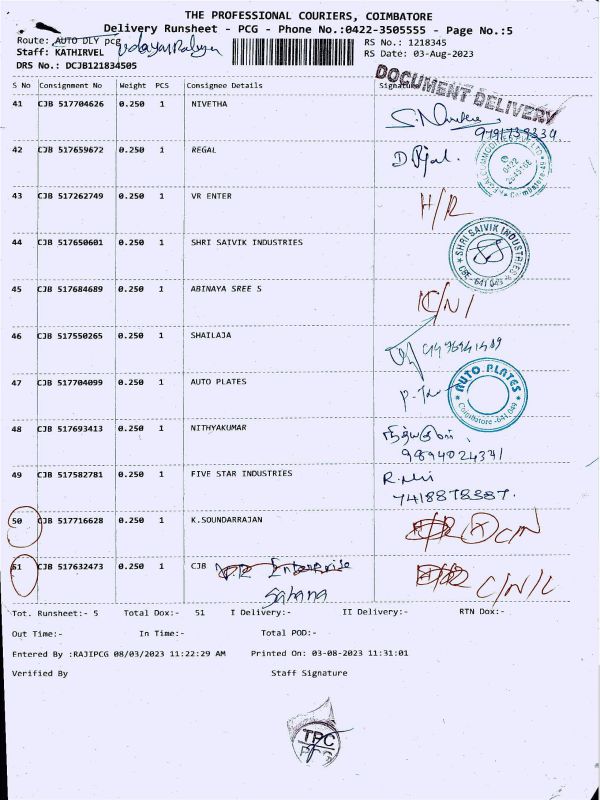 THE PROFESSIONAL COURIERS, COIMBATORE
Delivery Runsheet - PCG - Phone No.:0422-3505555 - Page No.:5
Route: AUTO DLY pcg
RS No.: 1218345
Staff: KATHIRVEL
RS Date: 03-Aug-2023
DRS No.: DCJB121834505
DOCUMENT DELIVERY
S No Consignment No Weight PCS Consignee Details Signature
41 CJB 517704626 0.250 1 NIVETHA
42 CJB 517659672 0.250 1 REGAL
43 CJB 517262749 0.250 1 VR ENTER H/R
44 CJB 517650601 0.250 1 SHRI SAIVIK INDUSTRIES
SHRI SAIVIK INDUSTRIES
45 CJB 517684689 0.250 1 ABINAYA SREE S
46 CJB 517550265 0.250 1 SHAILAJA
47 CJB 517704099 0.250 1 AUTO PLATES
AUTO PLATES
Coimbatore - 641 049
48 CJB 517693413 0.250 1 NITHYAKUMAR
49 CJB 517582781 0.250 1 FIVE STAR INDUSTRIES
7418878387.
50 CJB 517716628 0.250 1 K.SOUNDARRAJAN C/N
51 CJB 517632473 0.250 1 CJB V.R Enterprise
Sahana
Tot. Runsheet:- 5 Total Dox:- 51 I Delivery:- II Delivery:- RTN Dox:-
Out Time:- In Time:- Total POD:-
Entered By :RAJIPCG 08/03/2023 11:22:29 AM Printed On: 03-08-2023 11:31:01
Verified By Staff Signature
TPC